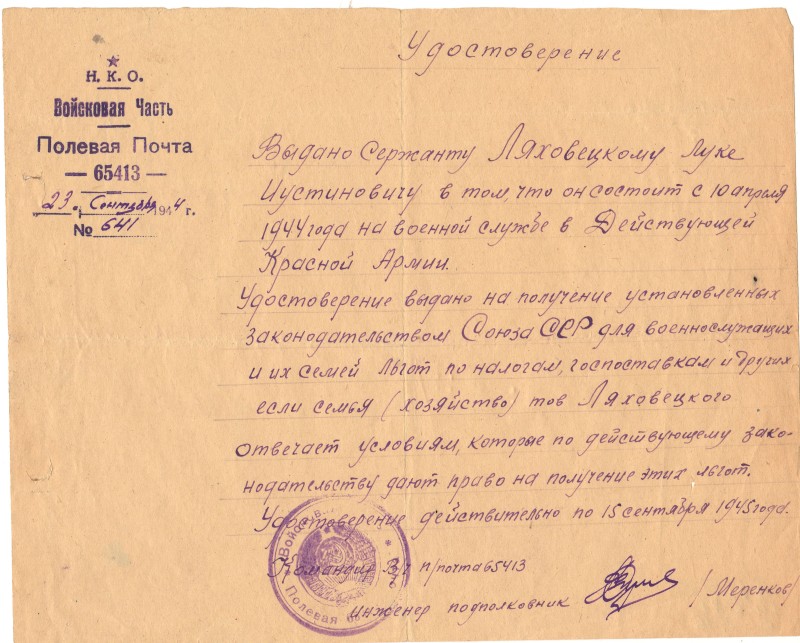 Удостоверение
Н. К. О.
Войсковая Часть
Полевая Почта
— 65413 —
23. Сентября 1944 г.
№ 641
Выдано Сержанту Ляховецкому Луке
Иустиновичу в том, что он состоит с 10 апреля
1944 года на военной службе в Действующей
Красной Армии.
Удостоверение выдано на получение установленных
законодательством Союза ССР для военнослужащих
и их семей льгот по налогам, госпоставкам и других
если семья (хозяйство) тов Ляховецкого
отвечает условиям, которые по действующему зако-
нодательству дают право на получение этих льгот.
Удостоверение действительно по 15 сентября 1945 года.
Командир В/ч п/почта 65413
Инженер подполковник /Меренков/
Полевая